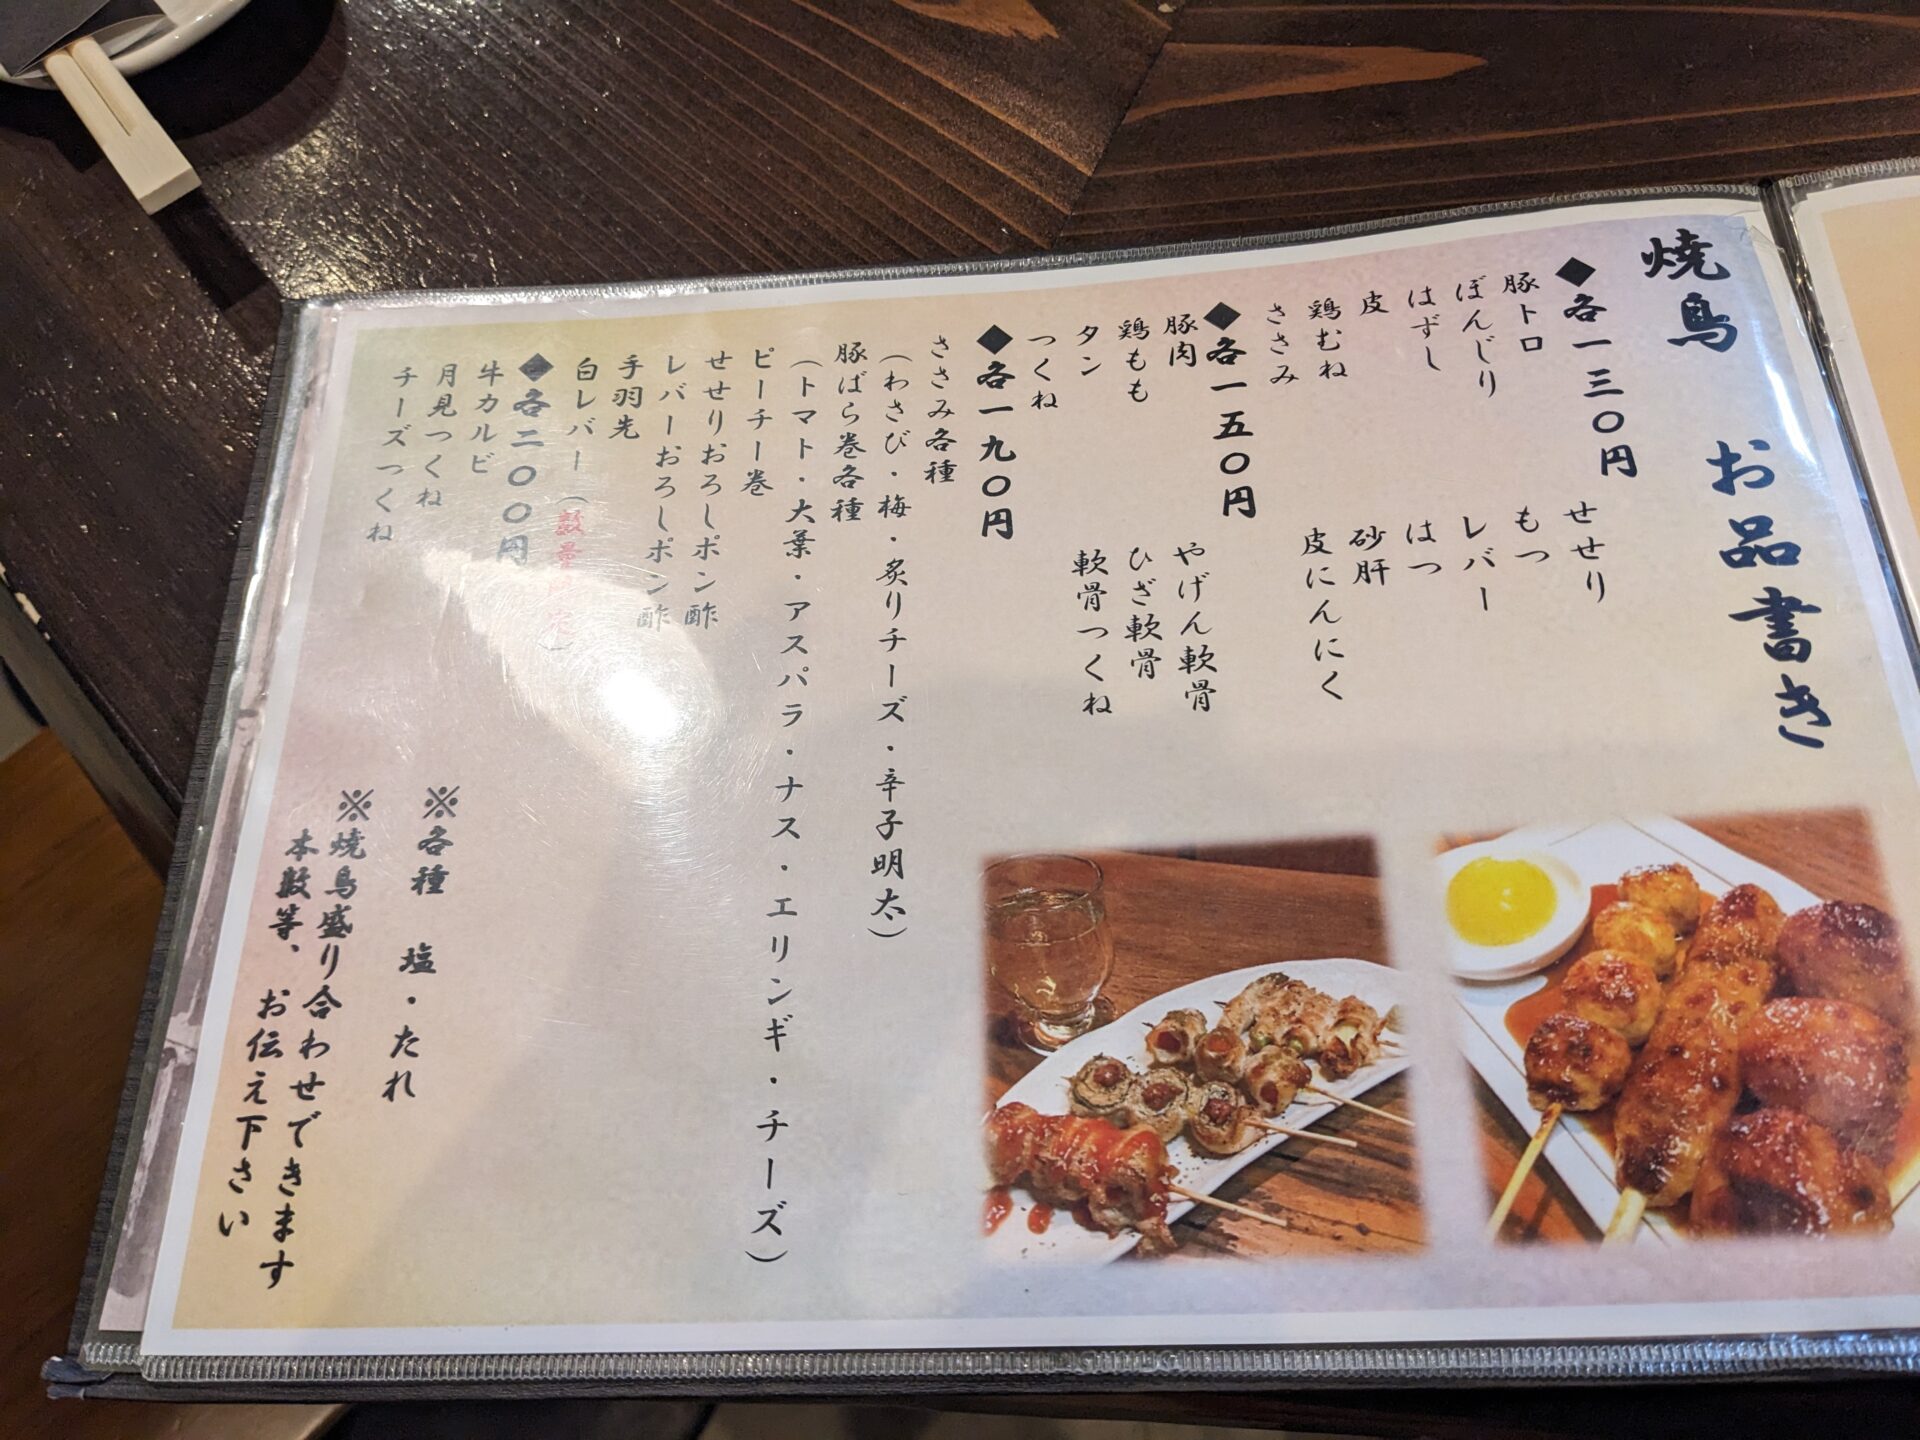 焼鳥 お品書き
◆各一三〇円
豚トロ
ぼんじり
はずし
皮
鶏むね
ささみ
せせり
もつ
レバー
はつ
砂肝
皮にんにく
◆各一五〇円
豚肉
鶏もも
タン
つくね
やげん軟骨
ひざ軟骨
軟骨つくね
◆各一九〇円
ささみ各種
(わさび・梅・炙りチーズ・辛子明太)
豚ばら巻各種
(トマト・大葉・アスパラ・ナス・エリンギ・チーズ)
ピーチー巻
せせりおろしポン酢
レバーおろしポン酢
手羽先
白レバー(数量限定)
◆各二〇〇円
牛カルビ
月見つくね
チーズつくね
※各種 塩・たれ
※焼鳥盛り合わせできます
本数等、お伝え下さい